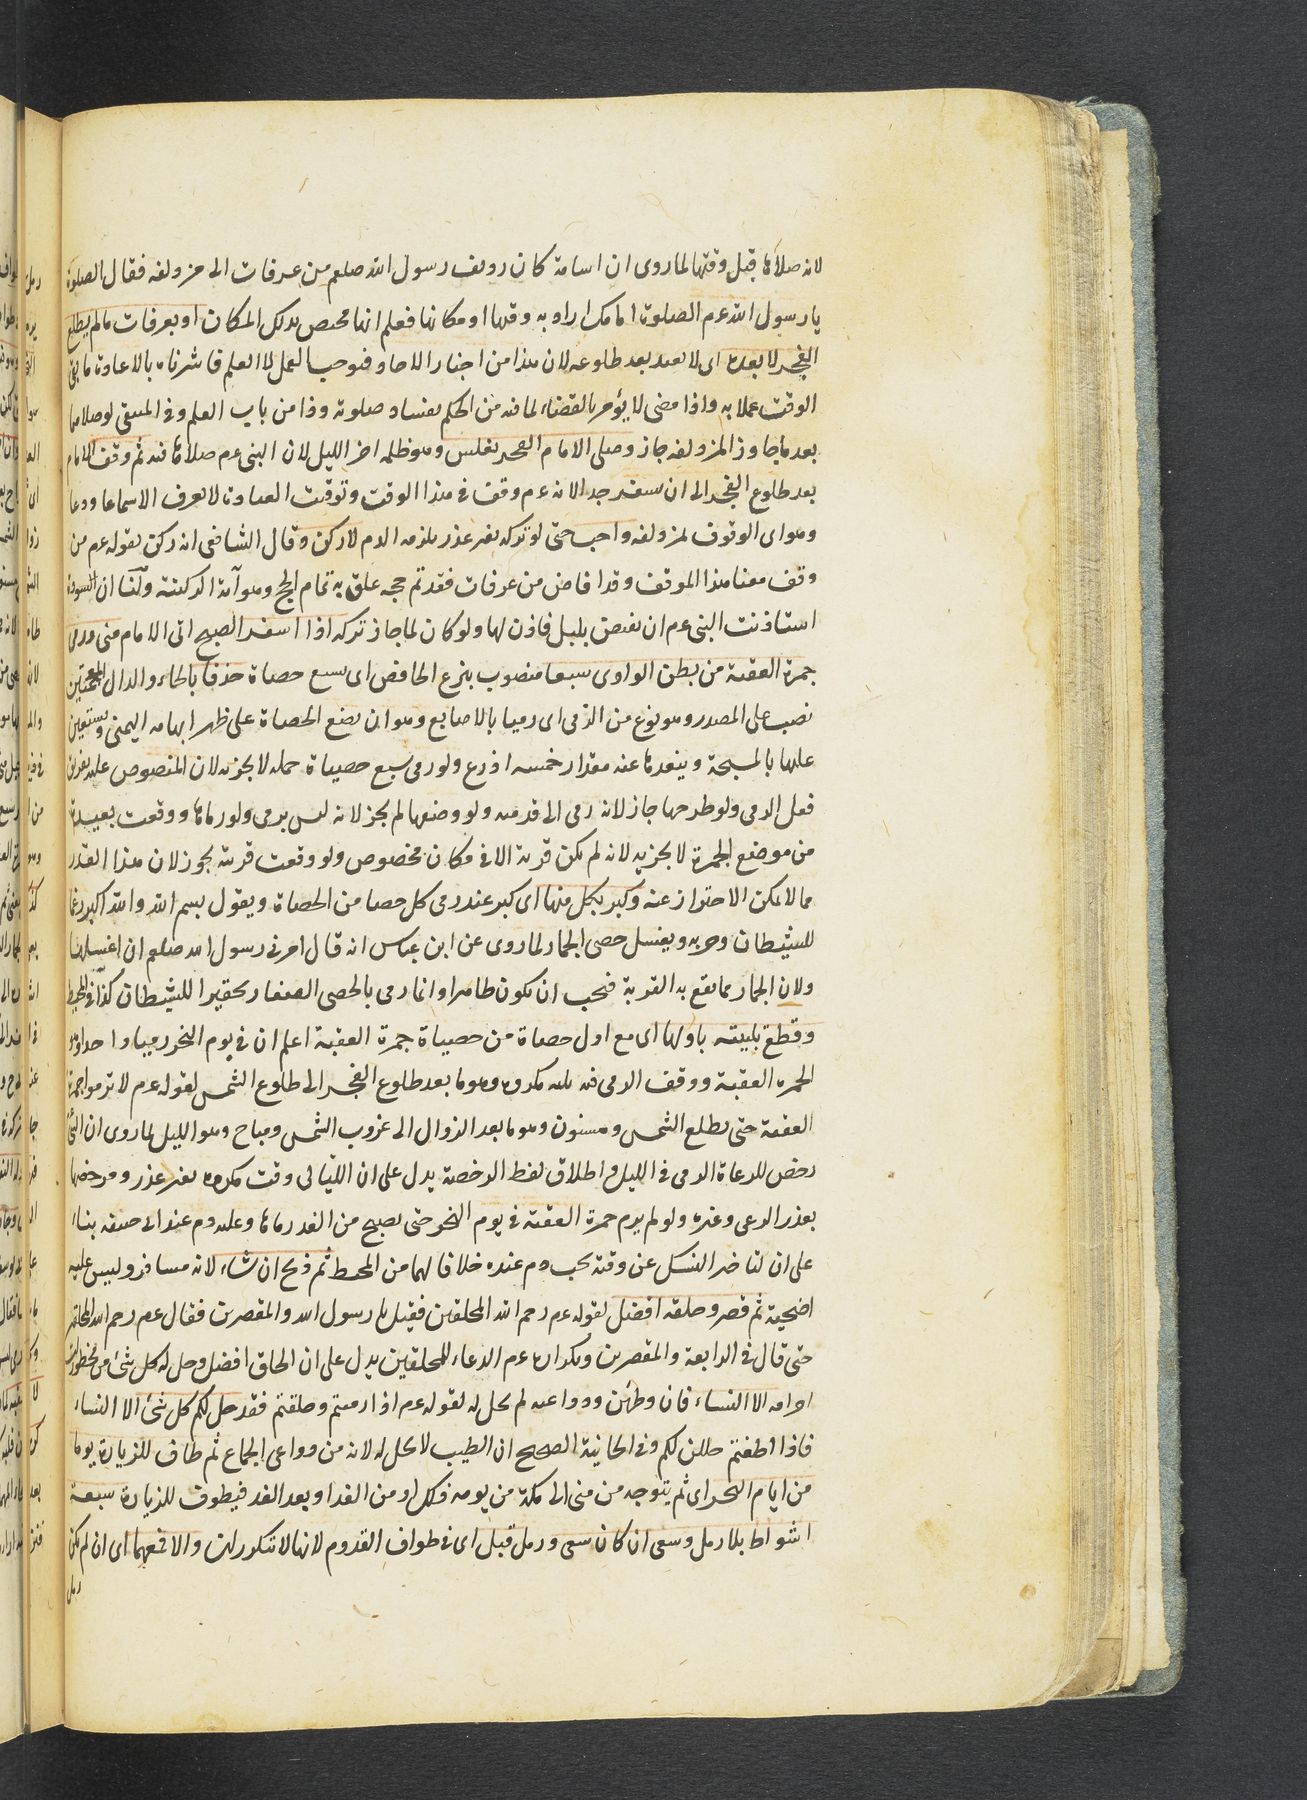 لانه صلاها قبل وقتها لما روى ان اسامة كان رديف رسول الله صلعم من عرفات الى مزدلفه فقال الصلوة
يا رسول الله عم الصلوة امامك اراد به وقتها او مكانها فعلم انها مختص بذلك المكان او بعرفات ما لم يطلع
الفجر لا بعده اى لا يعيد بعد طلوعه لان هذا من اخبار الاحاد فيوجب العمل لا العلم فاشرناه بالاعادة ما بقى
الوقت عملا به واذا مضى لا يؤمر بالقضاء لما فيه من الحكم بفساد صلوته وذا من باب العلم وفى المبتغى لو صلاهما
بعد ما جاوز المزدلفه جاز وصلى الامام الفجر بغلس وهو ظلمه اخر الليل لان النبى عم صلاها فيه ثم وقف الامام
بعد طلوع الفجر الى ان يسفر جدا لانه عم وقف فى هذا الوقت وتوقيت العبادة لا يعرف الا سماعا ودعا
وهو اى الوقوف بمزدلفه واجب حتى لو تركه بغير عذر يلزمه الدم لا ركن وقال الشافعى انه ركن لقوله عم من
وقف معنا هذا الموقف وقد افاض من عرفات فقد تم حجه علق به تمام الحج وهو آية الركنية ولنا ان السودة
استاذنت النبى عم ان تفيض بليل فاذن لها ولو كان لما جاز تركه اذا اسفر الصبح اتى الامام منى ورمى
جمرة العقبة من بطن الوادى سبعا منصوب بنزع الخافض اى بسبع حصاة خذفا بالخاء والذال المعجمتين
نصب على المصدر وهو نوع من الرمى اى رميا بالاصابع وهو ان يضع الحصاة على ظهر ابهامه اليمنى ويستعين
عليها بالمسبحة ويبعدها عنه مقدار خمسه اذرع ولو رمى سبع حصياة جمله لا يجزيه لان المنصوص عليه تفريق
فعل الرمى ولو طرحها جاز لانه رمى الى قدميه ولو وضعها لم يجز لانه ليس برمى ولو رماها ووقعت بعيدة
من موضع الجمرة لا يجزيه لانه لم يكن قربة الا فى مكان مخصوص ولو وقعت قريبة يجوز لان هذا القدر
مما لا يمكن الاحتراز عنه وكبر بكل منها اى كبر عند رمى كل حصا من الحصاة ويقول بسم الله والله اكبر رغما
للشيطان وحزبه ويغسل حصى الجمار لما روى عن ابن عباس انه قال امرنى رسول الله صلعم ان اغسلها
ولان الجمار مما يقع به القربة فيجب ان يكون طاهرا وانما رمى بالحصى الصغار تحقيرا للشيطان كذا فى المحيط
وقطع تلبيته باولها اى مع اول حصاة من حصياة جمرة العقبة اعلم ان فى يوم النحر رميا واحدا وهو
الجمرة العقبة ووقت الرمى فيه ثلثه مكروه وهو ما بعد طلوع الفجر الى طلوع الشمس لقوله عم لا ترموا جمرة
العقبة حتى يطلع الشمس ومسنون وهو ما بعد الزوال الى غروب الشمس ومباح وهو الليل لما روى ان النبى
رخص للرعاة الرمى فى الليل واطلاق لفظ الرخصة يدل على ان الليالى وقت مكروه بغير عذر ومرخصها
بعذر الرعى وغيره ولو لم يرم جمرة العقبة فى يوم النحر حتى يصبح من الغد رماها وعليه دم عند ابى حنيفه بناء
على ان تاخير النسك عن وقته يجب دم عنده خلافا لهما من المحيط ثم ذبح ان شاء لانه مسافر وليس عليه
اضحية ثم قصر وحلقه افضل لقوله عم رحم الله المحلقين فقيل يا رسول الله والمقصرين فقال عم رحم الله المحلقين
حتى قال فى الرابعة والمقصرين وتكراره عم الدعاء للمحلقين يدل على ان الحلق افضل وحل له كل شئ من محظورات
احرامه الا النساء فان وطئهن ودواعيه لم يحل له لقوله عم اذا رميتم وحلقتم فقد حل لكم كل شئ الا النساء
فاذا اطفتم حللن لكم وفى الخانية الصحيح ان الطيب لا يحل له لانه من دواعى الجماع ثم طاف للزيارة يوما
من ايام النحر اى ثم يتوجه من منى الى مكة من يومه ذلك او من الغد او بعد الغد فيطوف للزيارة سبعة
اشواط بلا رمل وسعى ان كان سعى ورمل قبل اى فى طواف القدوم لانها لا تتكرر ان والا فمعهما اى ان لم يكن
رمل